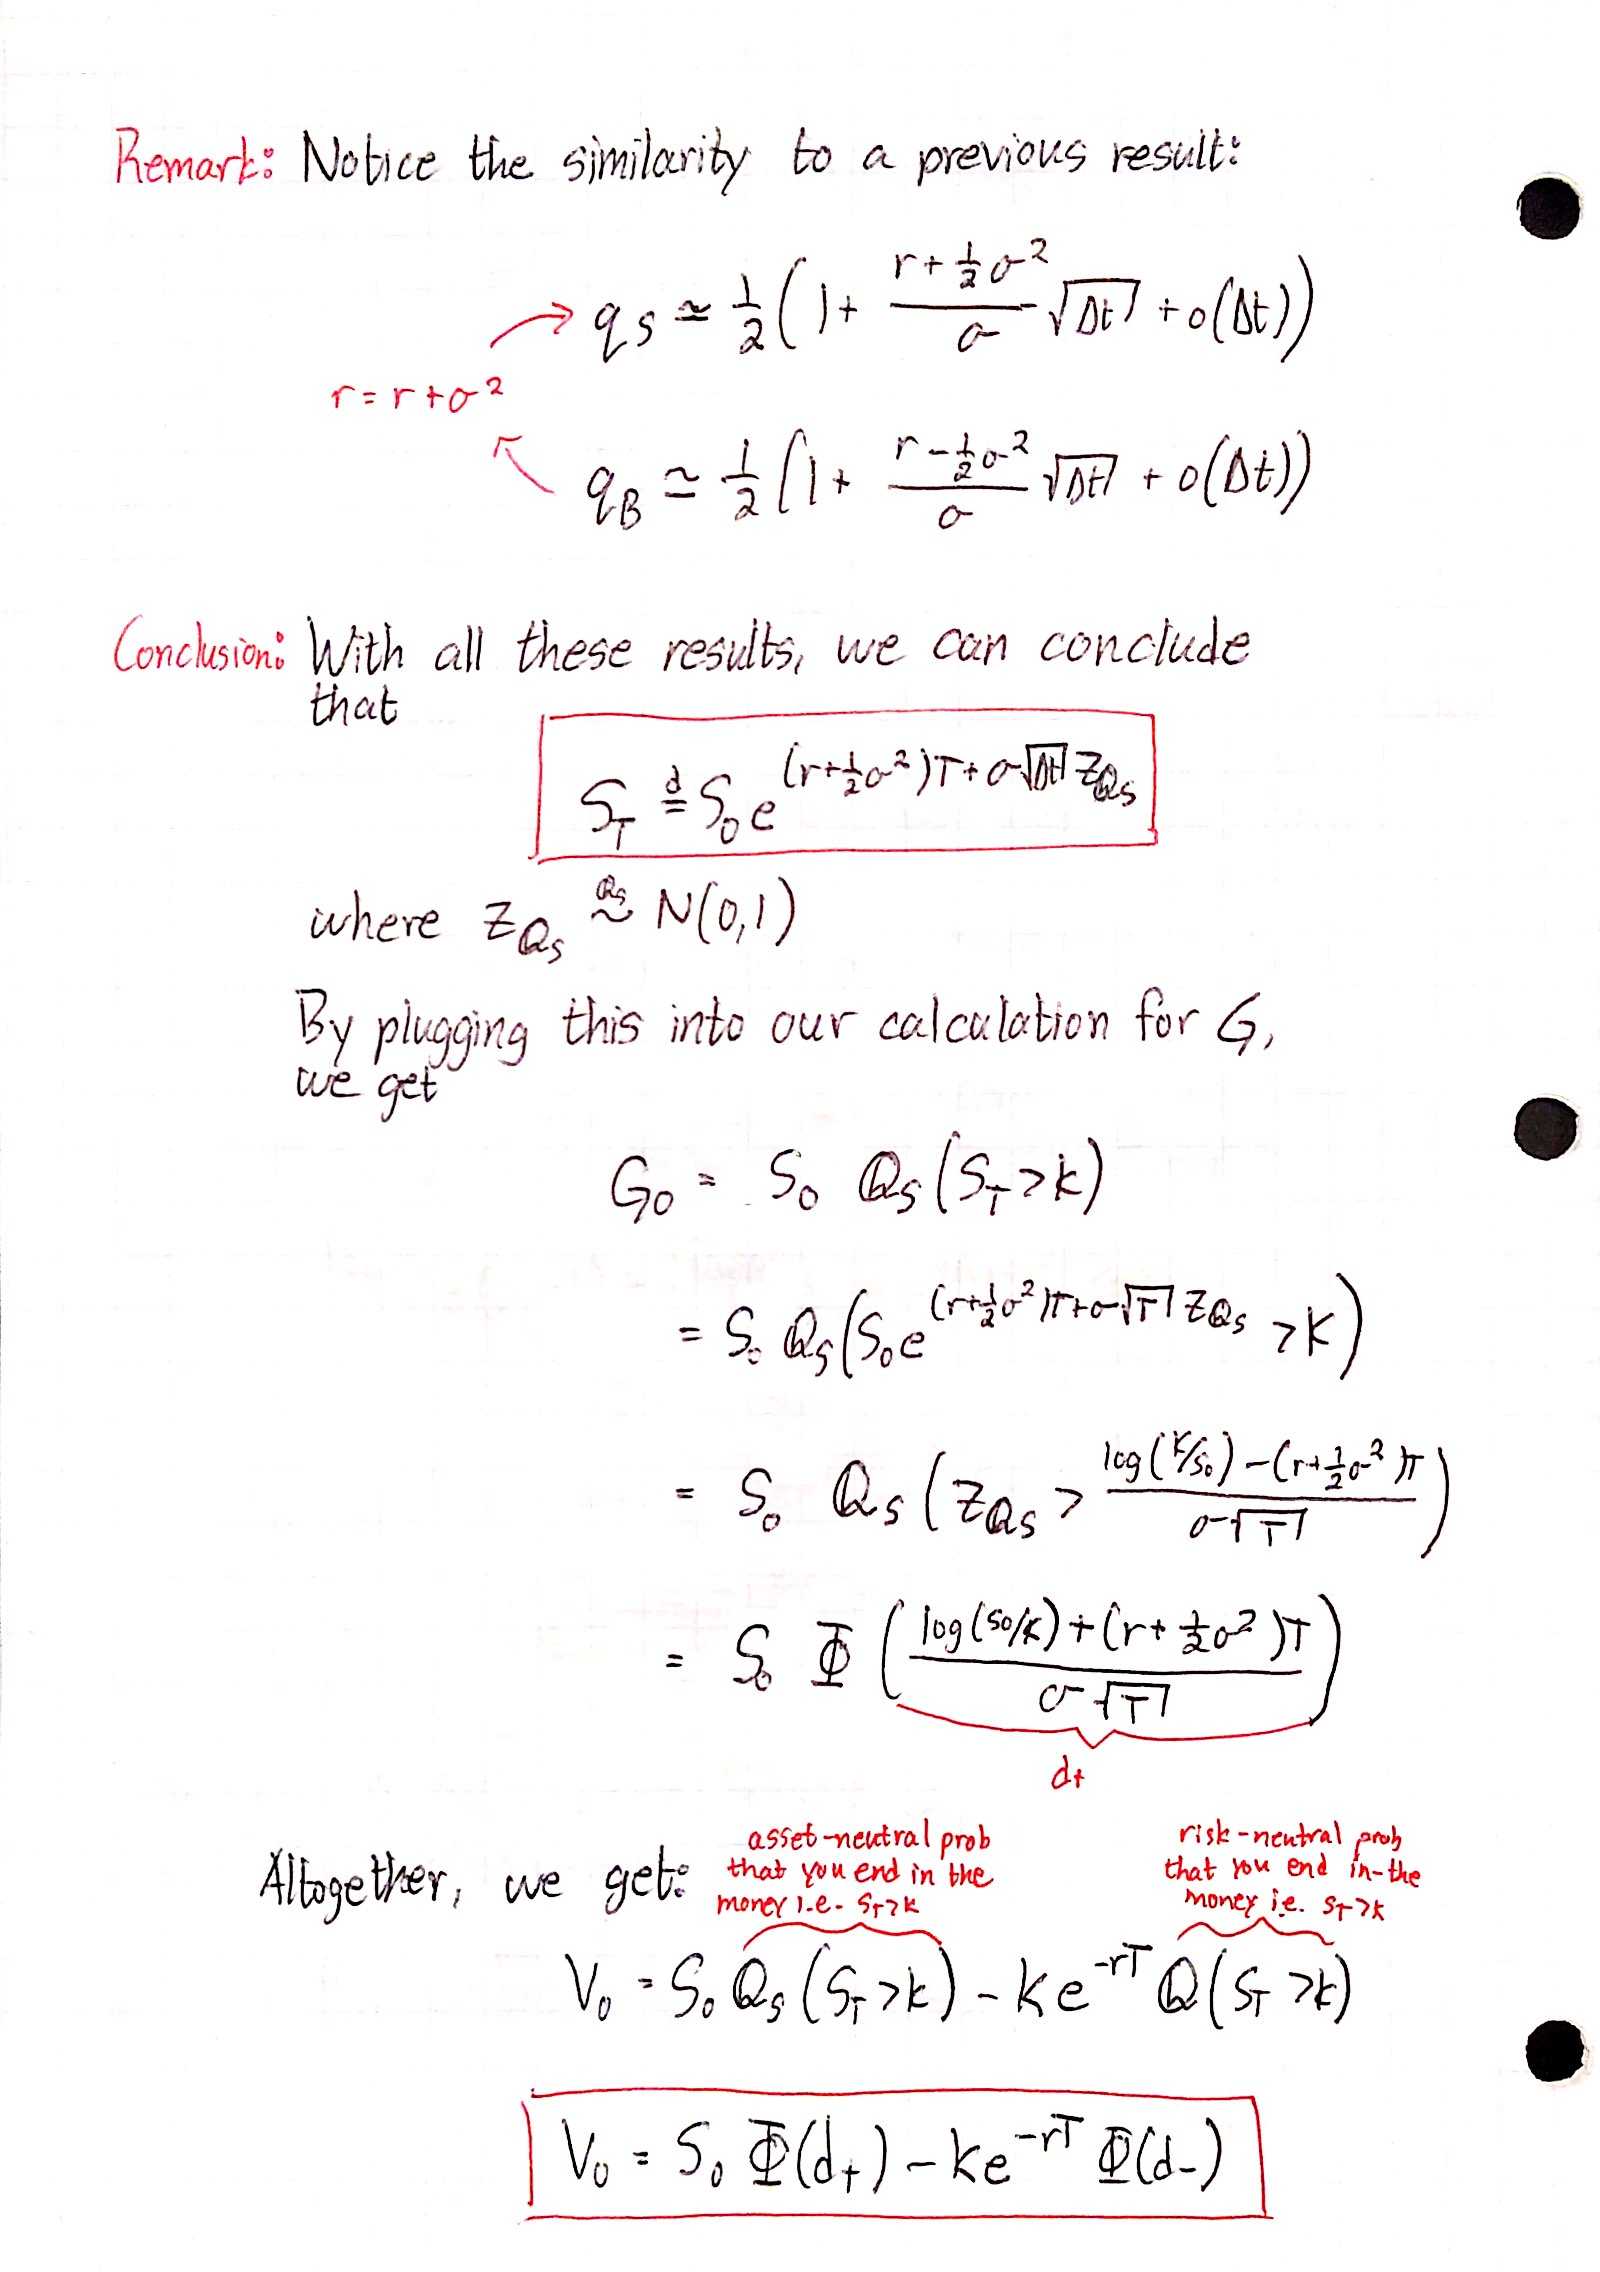 Remark: Notice the similarity to a previous result:
q_S ≃ 1/2 (1 + (r + 1/2 σ²)/σ √Δt + o(Δt))
r = r + σ²
q_B ≃ 1/2 (1 + (r - 1/2 σ²)/σ √Δt + o(Δt))
Conclusion: With all these results, we can conclude
that
S_T =^d S_0 e^((r + 1/2 σ²)T + σ√Δt Z_ℚs)
where Z_ℚs ~^ℚs N(0,1)
By plugging this into our calculation for G,
we get
G_0 = S_0 ℚ_S (S_T > K)
= S_0 ℚ_S (S_0 e^((r + 1/2 σ²)T + σ√T Z_ℚs) > K)
= S_0 ℚ_S (Z_ℚs > (log(K/S_0) - (r + 1/2 σ²)T)/(σ√T))
= S_0 Φ ((log(S_0/K) + (r + 1/2 σ²)T)/(σ√T))
d+
Altogether, we get:
asset-neutral prob
that you end in the
money i.e. S_T > K
risk-neutral prob
that you end in-the
money i.e. S_T > K
V_0 = S_0 ℚ_S (S_T > K) - K e^(-rT) ℚ(S_T > K)
V_0 = S_0 Φ(d_+) - K e^(-rT) Φ(d_-)